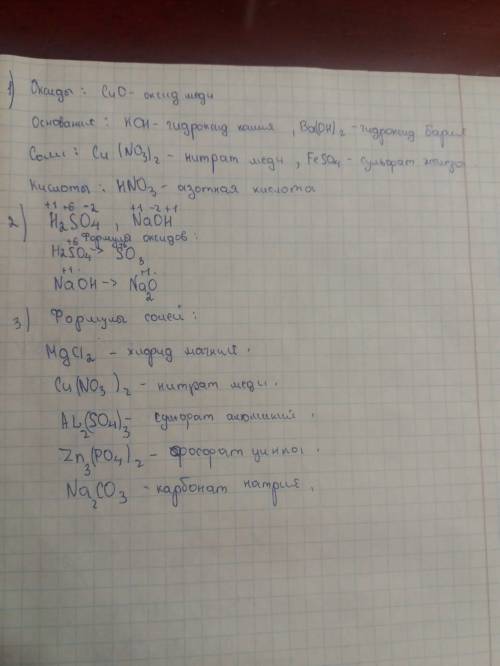 1) Оксиды : CuO - оксид меди
Основания : KOH - гидроксид калия , Ba(OH)2 - гидроксид бария
Соли : Cu (NO3)2 - нитрат меди , FeSO4 - сульфат железа
Кислоты : HNO3 - азотная кислота
+1 +6 -2 +1 -2 +1
2) H2SO4 , NaOH
Формулы оксидов :
+6 +6
H2SO4 -> SO3
+1 +1
NaOH -> Na2O
3) Формулы солей :
MgCl2 - хлорид магния .
Cu(NO3)2 - нитрат меди .
AL2(SO4)3 - сульфат алюминия .
Zn3(PO4)2 - фосфорат цинка .
Na2CO3 - карбонат натрия .